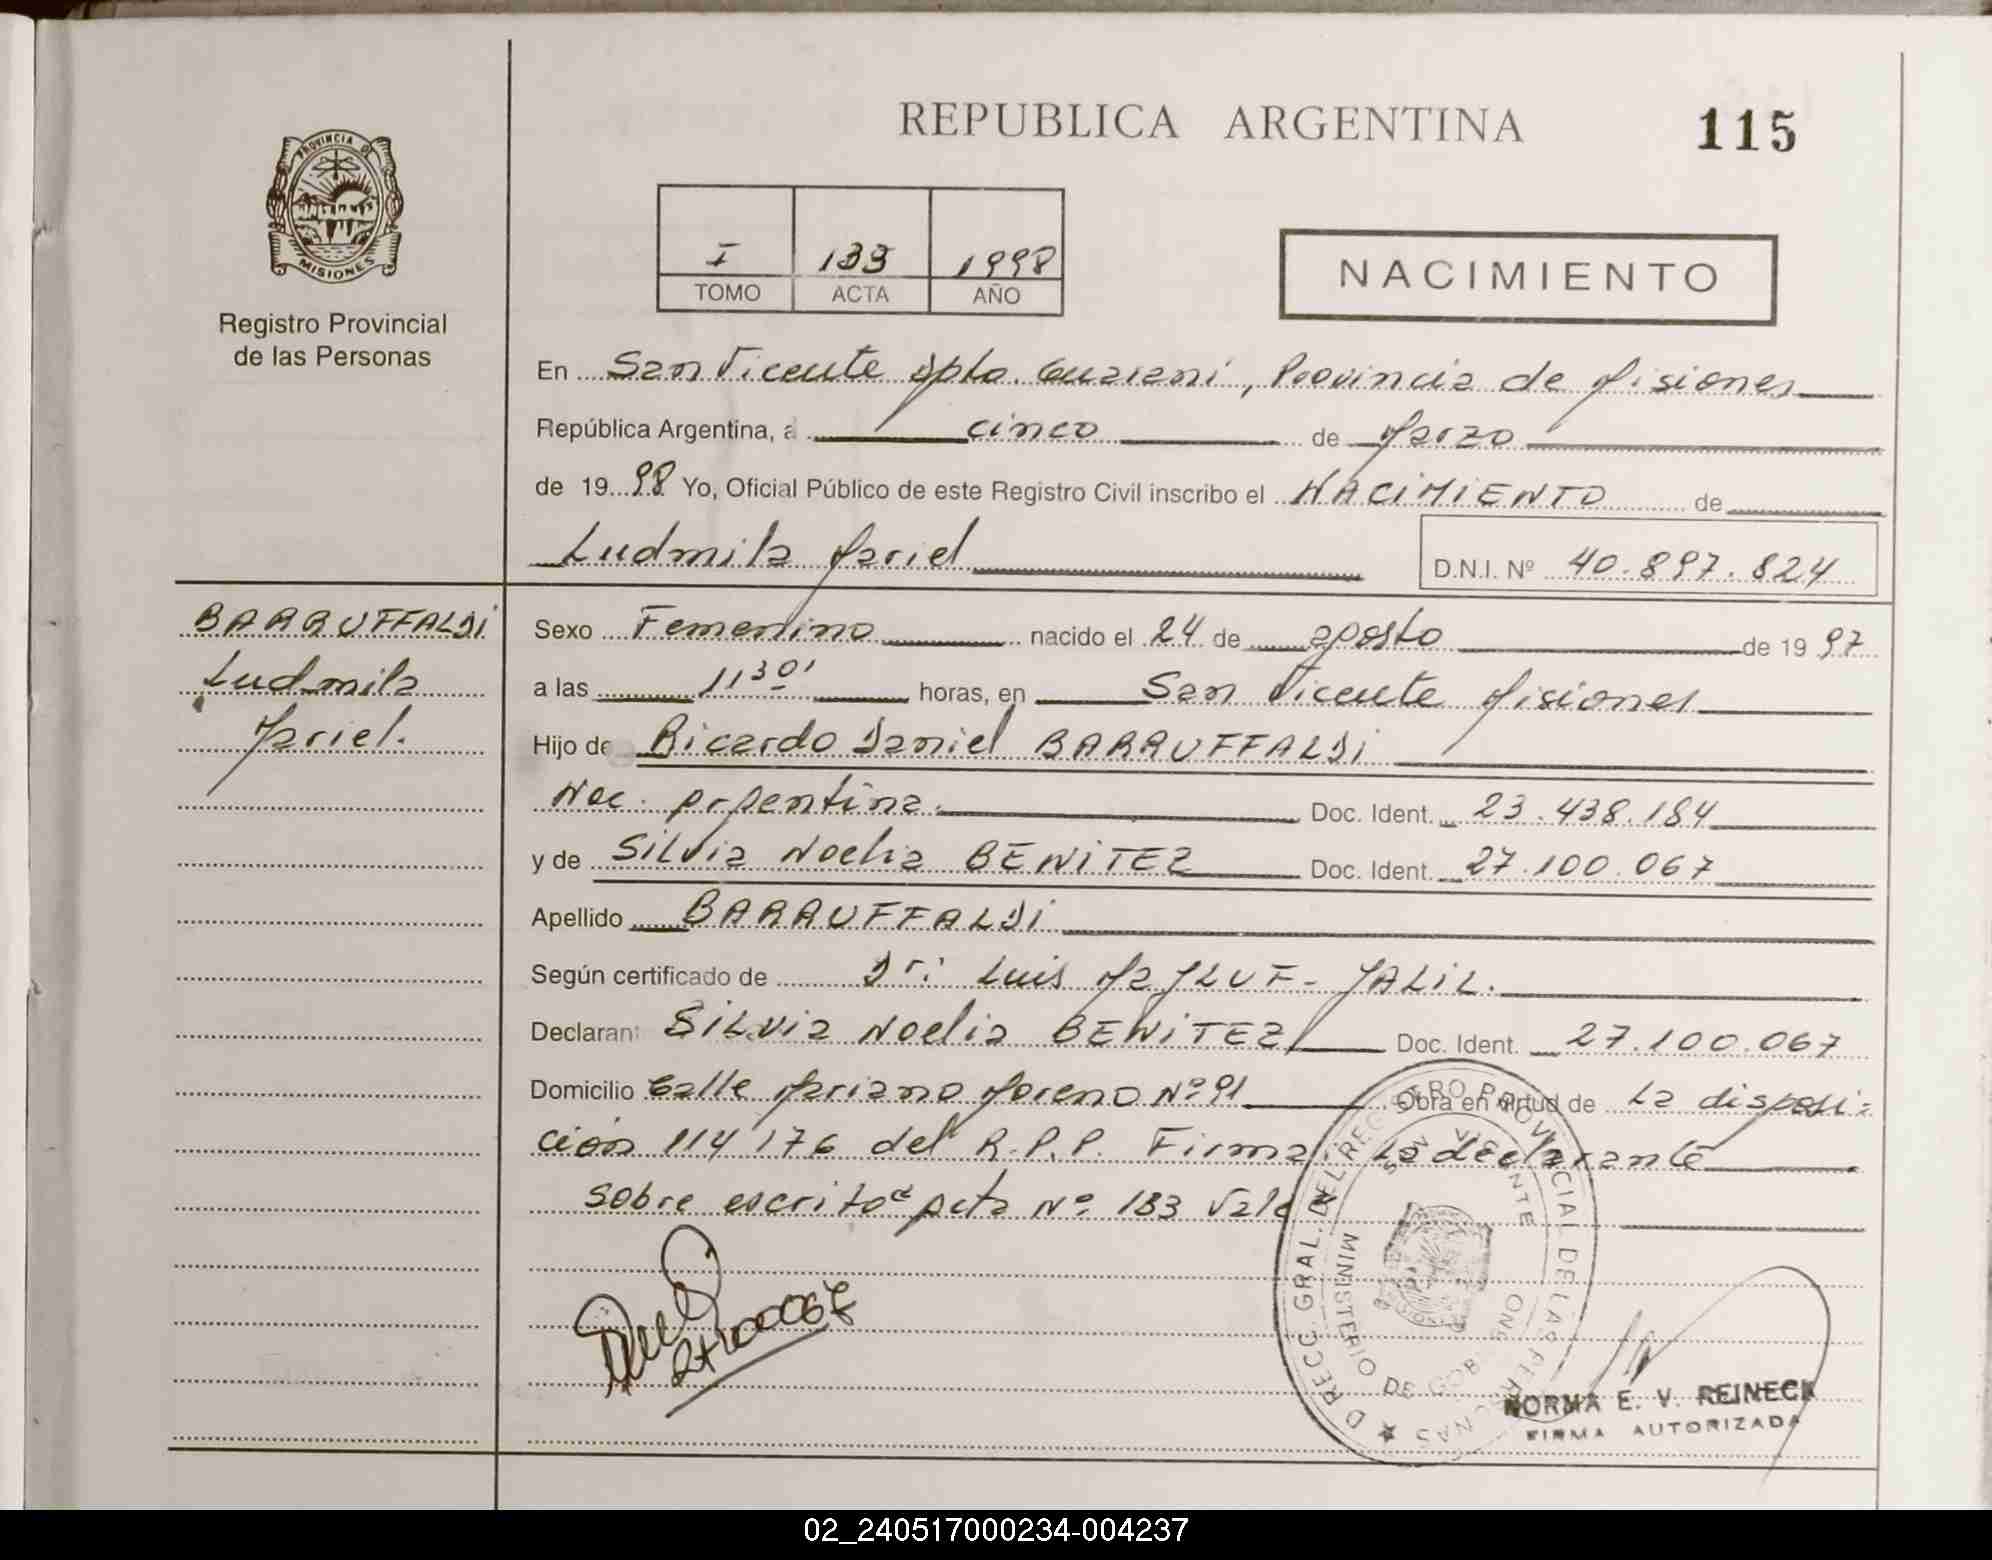 REPUBLICA ARGENTINA
115
PROVINCIA DE
MISIONES
Registro Provincial
de las Personas
I 133 1998
TOMO ACTA AÑO
NACIMIENTO
En San Vicente Dpto. Guaraní, Provincia de Misiones
República Argentina, a cinco de Marzo
de 1998 Yo, Oficial Público de este Registro Civil inscribo el NACIMIENTO de
Ludmila Mariel
D.N.I. Nº 40.897.824
BARRUFFALDI
Ludmila
Mariel.
Sexo Femenino nacido el 24 de agosto de 1997
a las 11 30' horas, en San Vicente Misiones
Hijo de Ricardo Daniel BARRUFFALDI
Nac. Argentina. Doc. Ident. 23.438.184
y de Silvia Noelia BENITEZ Doc. Ident. 27.100.067
Apellido BARRUFFALDI
Según certificado de Dr: Luis MaJLUF-JALIL.
Declarant Silvia Noelia BENITEZ Doc. Ident. 27.100.067
Domicilio Calle Mariano Moreno Nº 91 Obra en virtud de La disposi-
ción 114/76 del R.P.P. Firma: La declarante
Sobre escrito Acta Nº 133 Vale
27100067
DRECC. GRAL. DEL REGISTRO PROVINCIAL DE LAS PERSONAS
SAN VICENTE
MINISTERIO DE GOB
NORMA E. V. REINECK
FIRMA AUTORIZADA
02_240517000234-004237